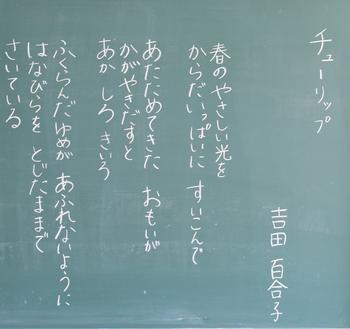 チューリップ
吉田 百合子
春のやさしい光を
からだいっぱいに すいこんで
あたためてきた おもいが
かがやきだすと
あか しろ きいろ
ふくらんだゆめが あふれないように
はなびらを とじたままで
さいている